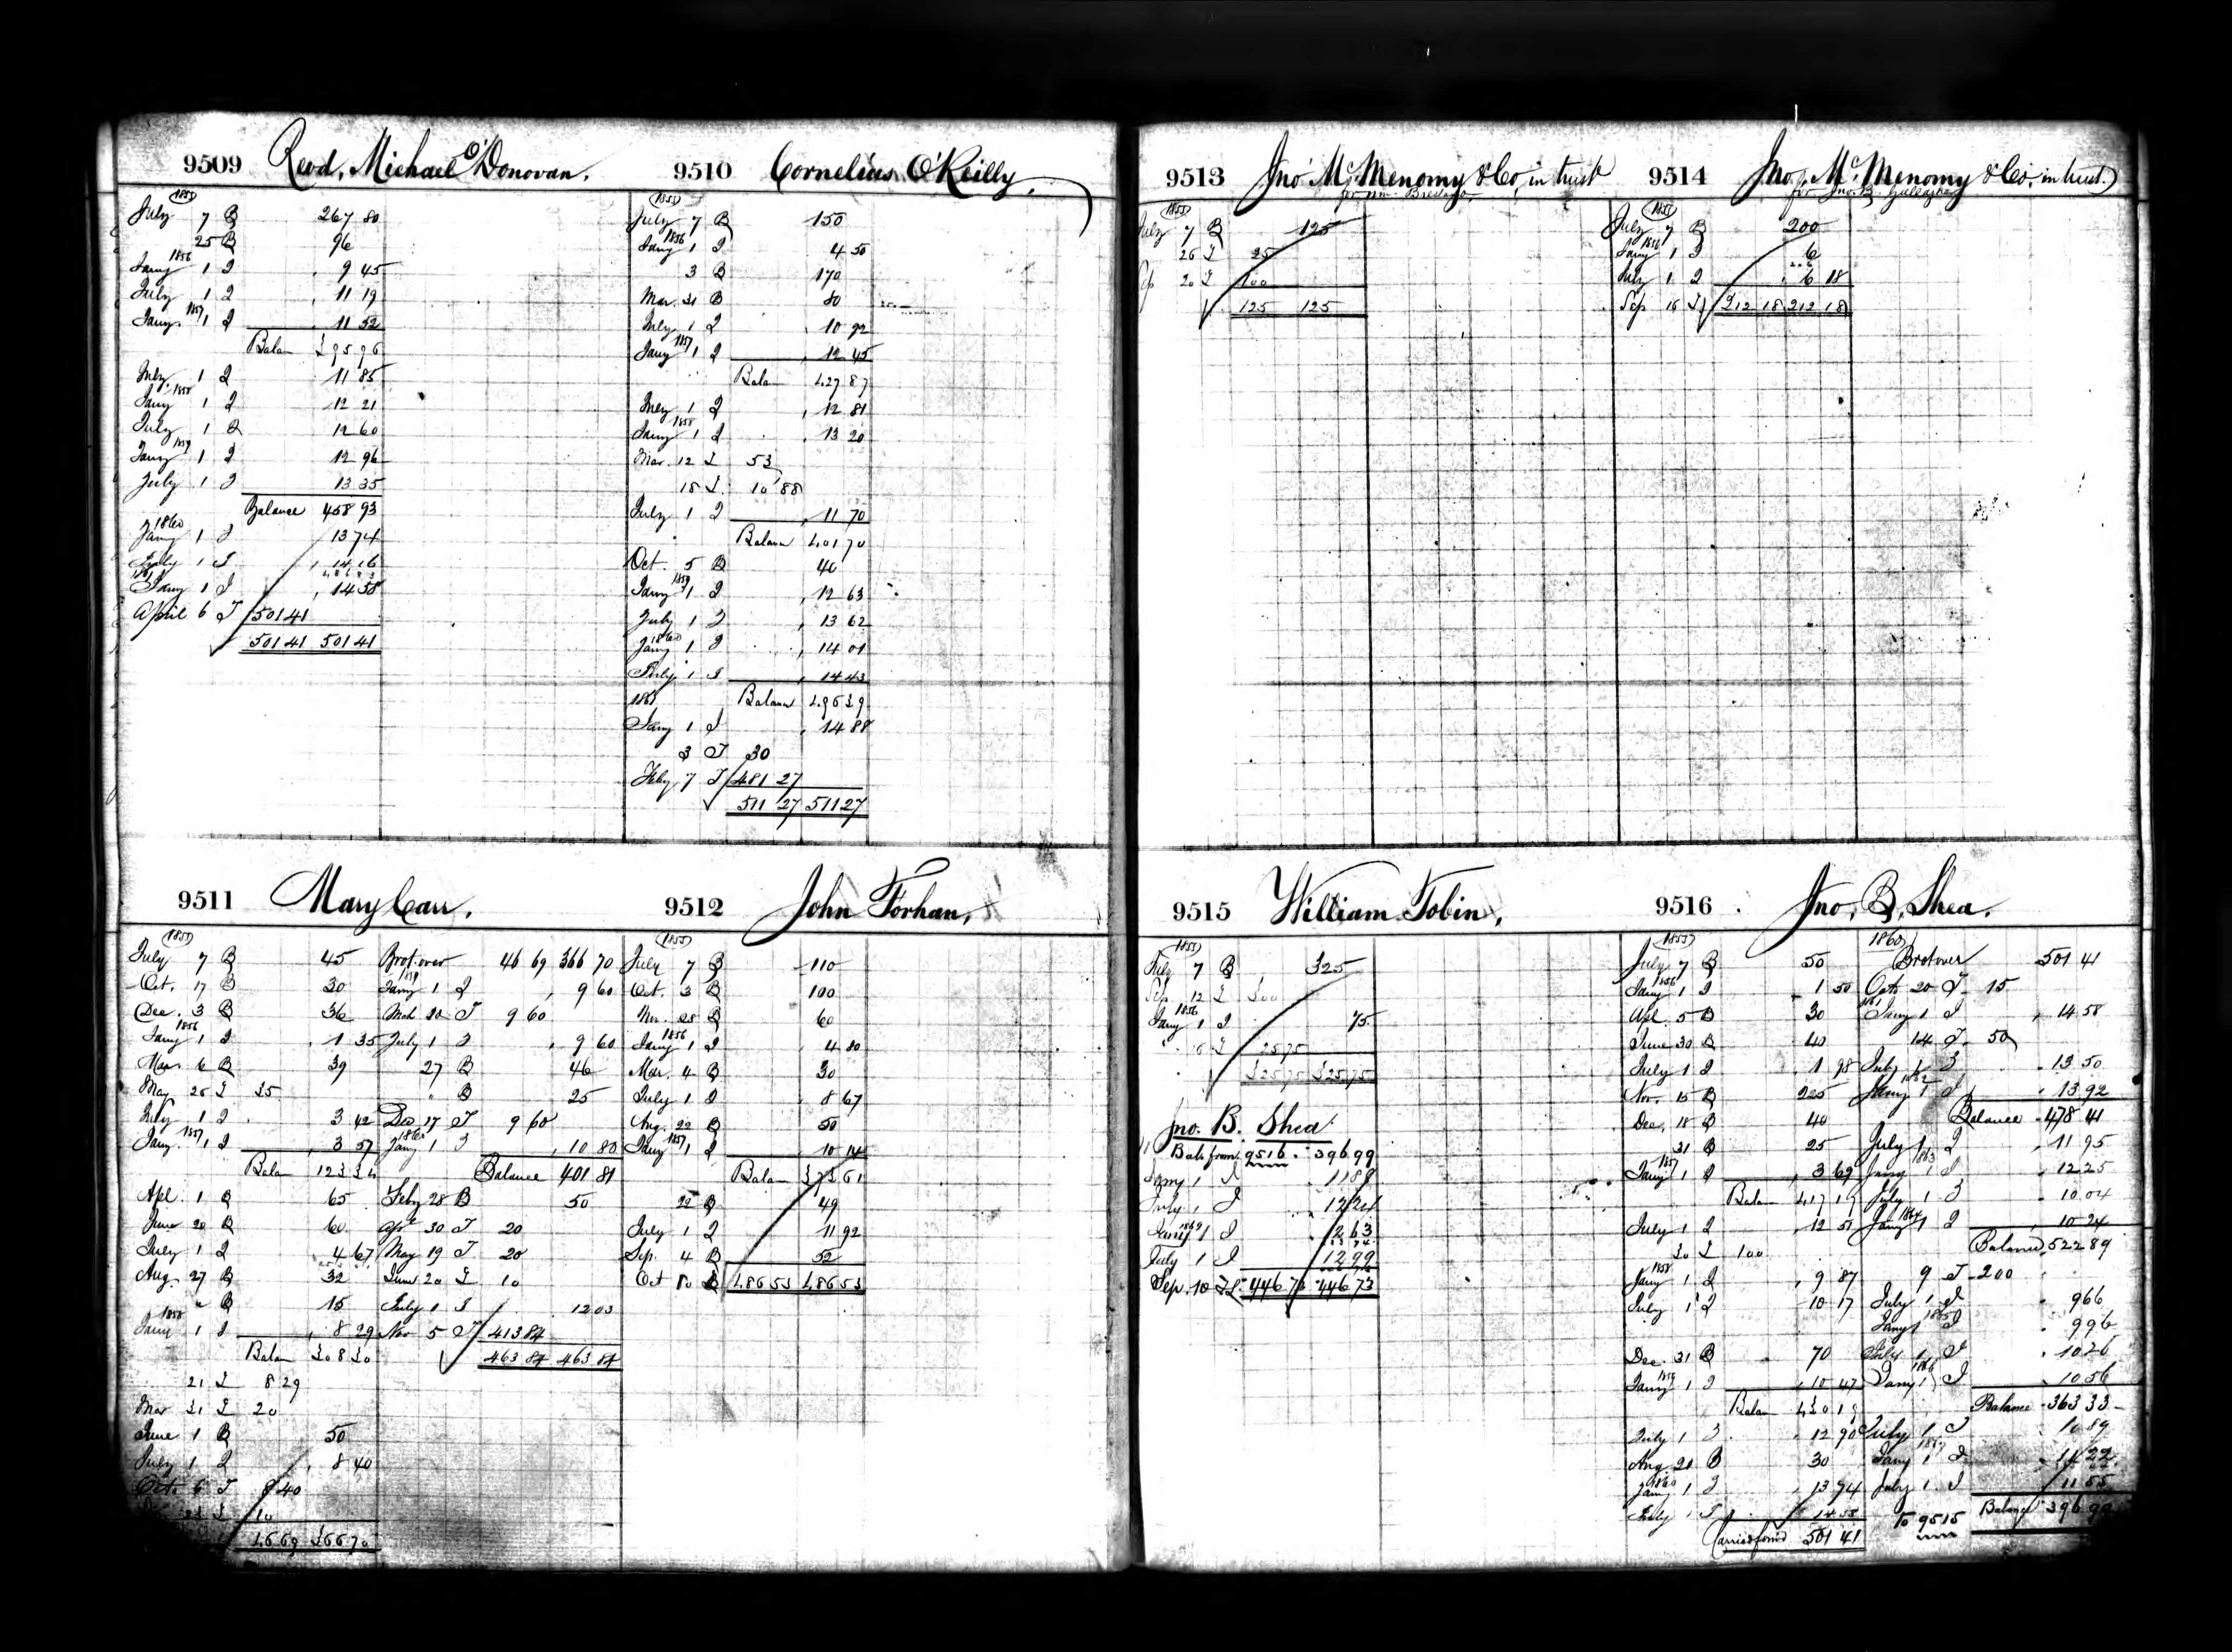 9509 Revd. Michael O'Donovan.
1855
July 7 B 267 80
25 B 96
1856
Jany 1 I 9 45
July 1 I 11 19
1857
Jany. 1 I 11 52
Balan 395 96
July 1 I 11 85
1858
Jany 1 I 12 21
July 1 I 12 60
1859
Jany 1 I 12 96
July 1 I 13 35
Balance 458 93
1860
Jany 1 I 13 74
July 1 I 14 16
1861
Jany 1 I 14 58
April 6 T 501 41
501 41 501 41
9510 Cornelius O'Reilly.
1855
July 7 B 150
1856
Jany 1 I 4 50
3 B 170
Mar. 31 B 80
July 1 I 10 92
1857
Jany 1 I 12 45
Balan 427 87
July 1 I 12 81
1858
Jany 1 I 13 20
Mar. 12 T 53
18 T 10 88
July 1 I 11 70
Balan 401 70
Oct. 5 B 40
1859
Jany 1 I 12 63
July 1 I 13 62
1860
Jany 1 I 14 01
July 1 I 14 43
1861 Balance 496 39
Jany 1 I 14 88
3 T 30
Feby 7 T 481 27
511 27 511 27
9511 Mary Carr.
1855
July 7 B 45
Oct. 17 B 30
Dec. 3 B 36
1856
Jany 1 I 1 35
Mar. 6 B 39
May 26 T 35
July 1 I 3 42
1857
Jany. 1 I 3 57
Balan 123 34
Apl. 1 B 65
June 20 B 60
July 1 I 4 67
Aug. 27 B 32
" B 15
1858
Jany 1 I 8 29
Balan 308 30
21 T 8 29
Mar 31 T 20
June 1 B 50
July 1 I 8 40
Oct. 6 T 8 40
23 T 10
46 69 366 70
Brot over 46 69 366 70
1859
Jany 1 I 9 60
Mch 10 T 9 60
July 1 I 9 60
27 B 46
" B 25
Dec 17 T 9 60
1860
Jany 1 I 10 80
Balance 401 81
Feby 28 B 50
Apl 30 T 20
May 19 T 20
June 20 T 10
July 1 I 12 03
Nov 5 T 413 84
463 84 463 84
9512 John Forhan.
1855
July 7 B 110
Oct. 3 B 100
Nov. 28 B 60
1856
Jany 1 I 4 80
Mar. 4 B 30
July 1 I 8 67
Aug. 22 B 50
1857
Jany 1 I 10 14
Balan 373 61
22 B 49
July 1 I 11 92
Sep. 4 B 52
Oct 80 T 486 53 486 53
9513 Jno McMenomy & Co, in trust
for
1855
July 7 B 125
26 T 25
Sep 20 T 100
125 125
9514 Jno. McMenomy & Co. in trust.
for Jno. B. Gallagher
1855
July 7 B 200
1856
Jany 1 I 6
July 1 I 6 18
Sep 16 T 212 18 212 18
9515 William Tobin.
1855
July 7 B 325
Sep. 12 T 300
1856
Jany 1 I 75
6 T 25 75
325 75 325 75
Jno. B. Shea
Bale from 9516 396 99
Jany 1 I 11 88
July 1 I 12 24
1869
Jany 1 I 12 63
July 1 I 12 99
Sep. 10 T 446 73 446 73
9516 Jno. B. Shea.
1855
July 7 B 50
1856
Jany 1 I 1 50
Apl. 5 B 30
June 30 B 40
July 1 I 1 98
Nov. 15 B 225
Dec. 18 B 40
31 B 25
1857
Jany 1 I 3 69
Balan 417 19
July 1 I 12 51
30 T 100
1858
Jany 1 I 9 87
July 1 I 10 17
Dec. 31 B 70
1859
Jany 1 I 10 47
Balan 430 19
July 1 I 12 90
Aug. 20 B 30
1860
Jany 1 I 13 74
July 1 I 14 55
Carried forwd 501 41
1860
Brot over 501 41
Octo 20 T 15
1861
Jany 1 I 14 58
14 T 50
July 1 I 13 50
1862
Jany 1 I 13 92
Balance 478 41
July 1 I 11 95
1863
Jany 1 I 12 25
July 1 I 10 04
1864
Jany 1 I 10 24
Balance 522 89
9 T 200
July 1 I 9 66
1865
Jany 1 I 9 96
July 1 I 10 26
1866
Jany 1 I 10 56
Balance 363 33
July 1 I 10 89
1867
Jany 1 I 11 22
July 1 I 11 55
To 9515 Balance 396 99